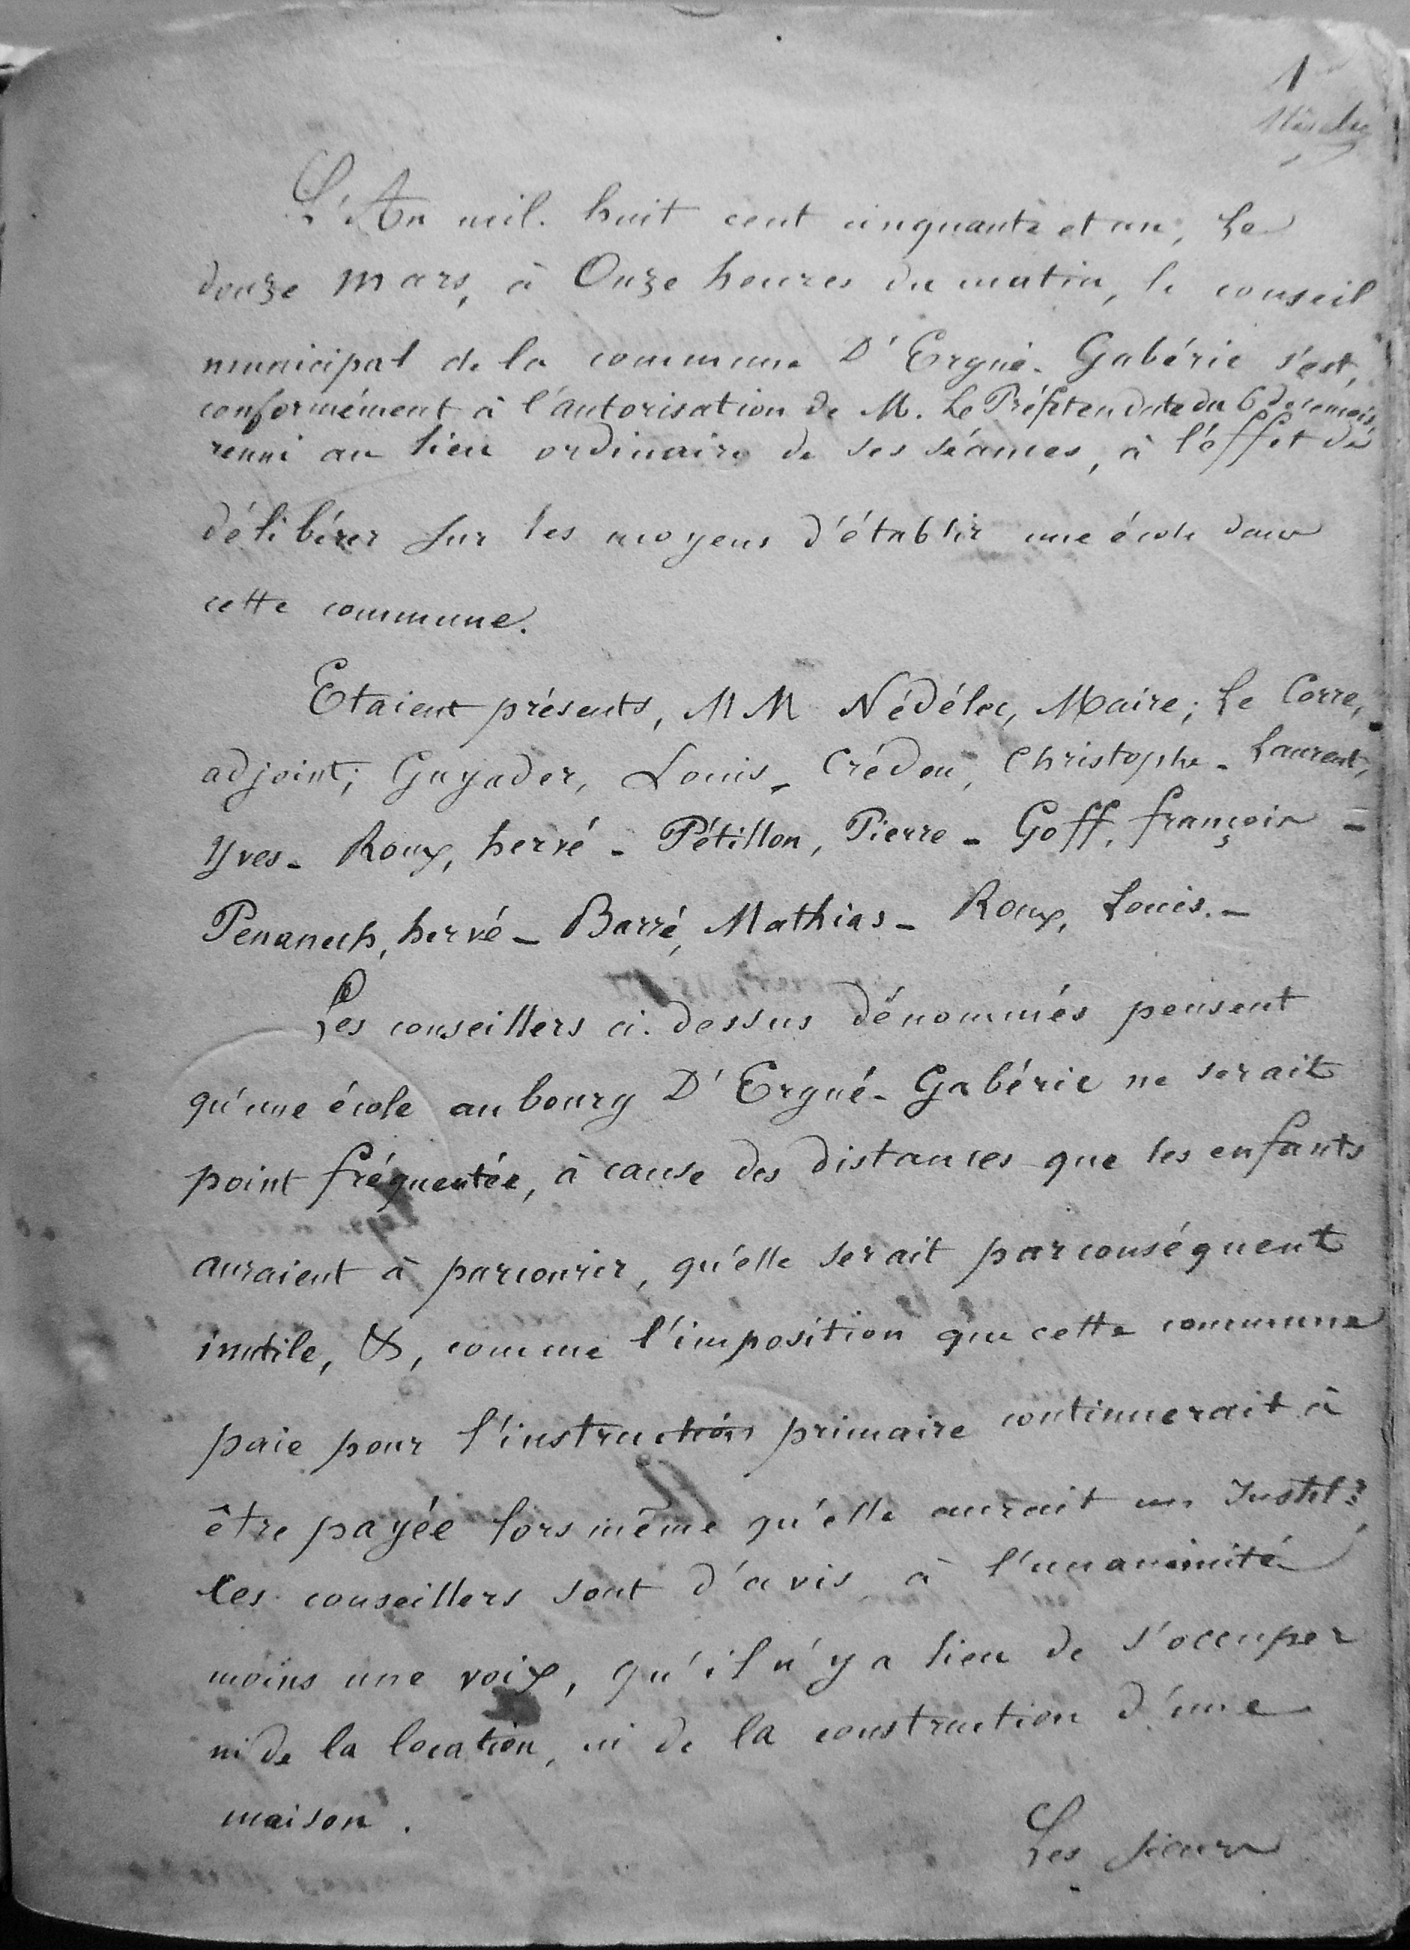 1
L'An mil. huit cent cinquante et un, Le
douze mars, à Onze heures du matin, le conseil
municipal de la commune D'Ergué-Gabéric s'est,
conformément à l'autorisation de M. Le Préfet en date du 6 de ce mois,
reuni au lieu ordinaire de ses séances, à l'éffet de
délibérer sur les moyens d'établir une école dans
cette commune.
Etaient présents, MM Nédélec, Maire; Le Corre,
adjoint; Guyader, Louis - Crédou, Christophe - Laurent,
Yves - Roux, hervé - Pétillon, Pierre - Goff, françois -
Penanech, hervé - Barré, Mathias - Roux, Louis. -
Les conseillers ci-dessus dénommés pensent
qu'une école au bourg D'Ergué-Gabéric ne serait
point fréquentée, à cause des distances que les enfants
auraient à parcourir, qu'elle serait parconséquent
inutile, &, comme l'imposition que cette commune
paie pour l'instruction primaire continuerait à
être payée lors même qu'elle aurait un Instit.r,
les conseillers sont d'avis, à l'unanimité
moins une voix, qu'il n'y a lieu de s'occuper
ni de la location, ni de la construction d'une
maison.
Les sieurs